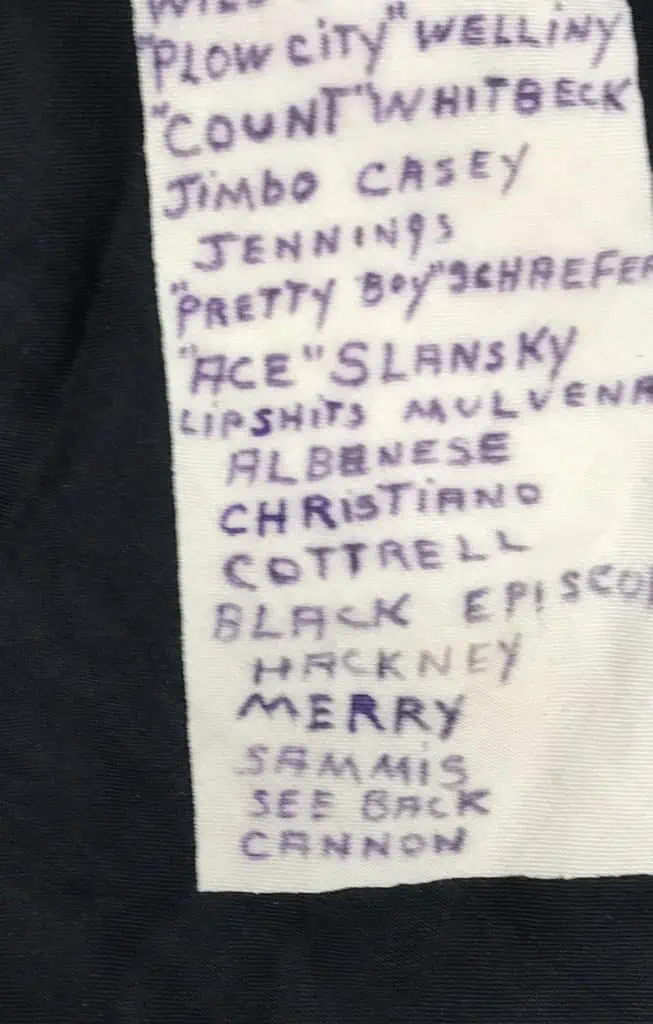 "PLOW CITY" WELLINY
"COUNT" WHITBECK
JIMBO CASEY
JENNINGS
"PRETTY BOY" SCHAEFER
"ACE" SLANSKY
LIPSHITS MULVENA
ALBANESE
CHRISTIANO
COTTRELL
BLACK EPISCO
HACKNEY
MERRY
SAMMIS
SEE BACK
CANNON